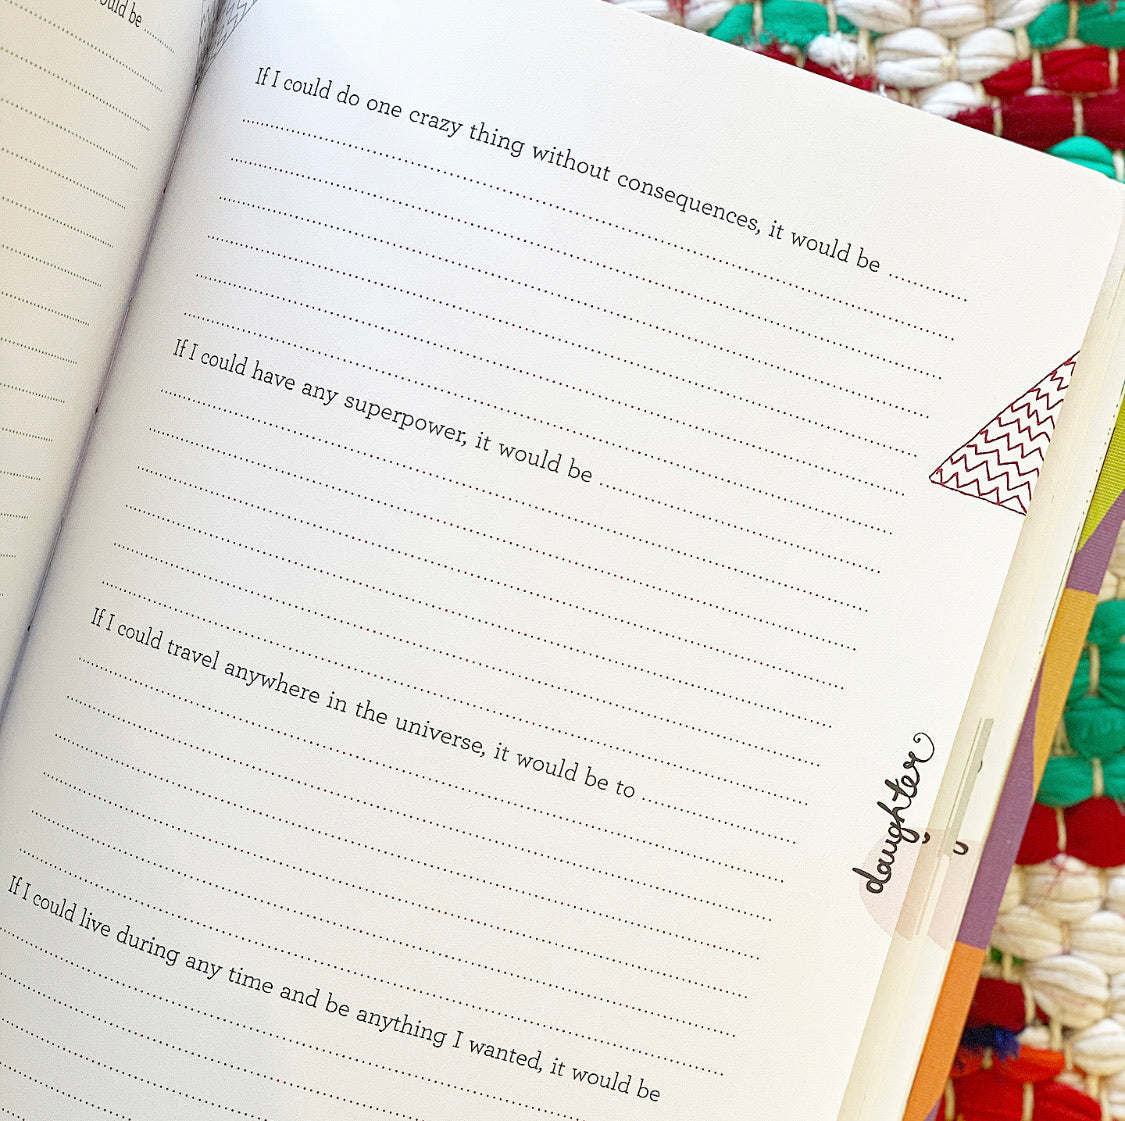 ould be
If I could do one crazy thing without consequences, it would be
If I could have any superpower, it would be
If I could travel anywhere in the universe, it would be to
If I could live during any time and be anything I wanted, it would be
daughter